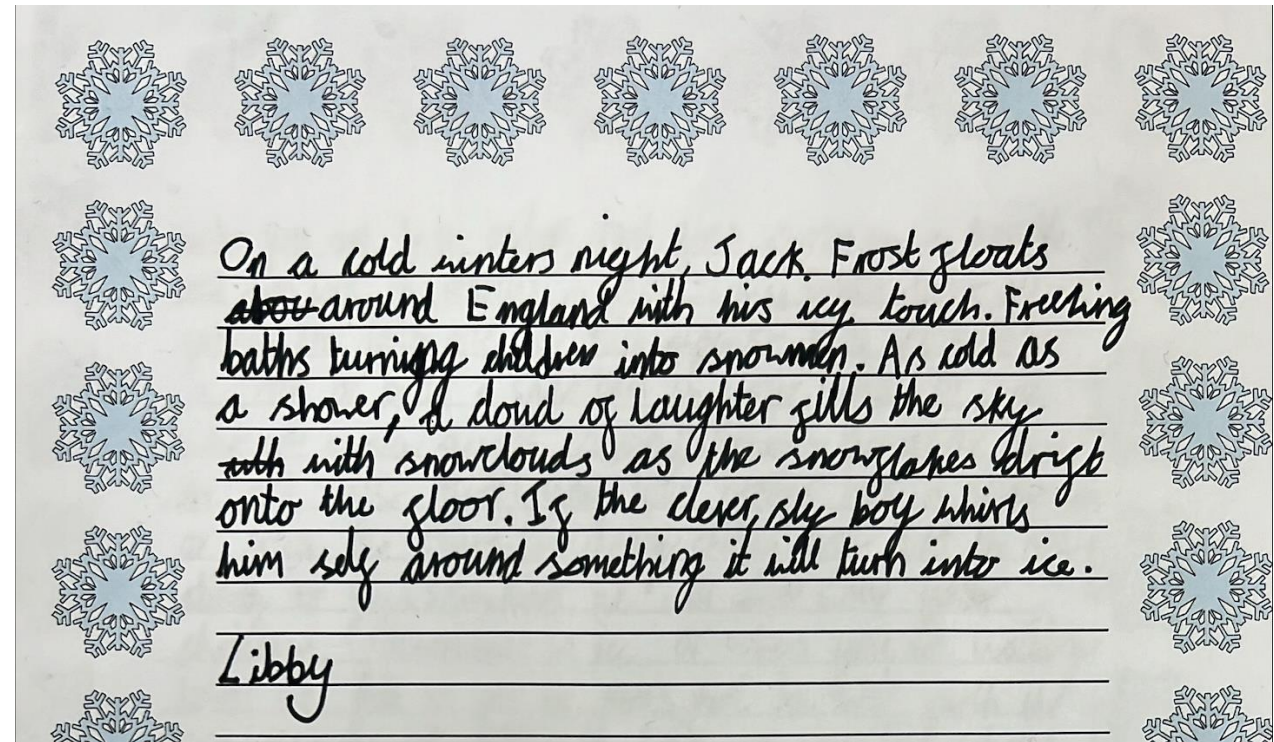 On a cold winters night, Jack Frost floats
abou around England with his icy touch. Freezing
baths turning children into snowmen. As cold as
a shower, a cloud of laughter fills the sky
with with snowclouds as the snowflakes drift
onto the floor. If the clever, sly boy whirls
him self around something it will turn into ice.
Libby